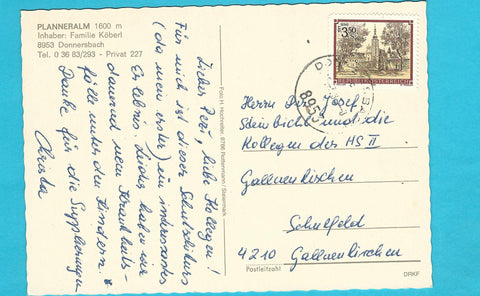 PLANNERALM 1600 m
Inhaber: Familie Köberl
8953 Donnersbach
Tel. 0 36 83/293 - Privat 227
Lieber Pepi, liebe Kollegen!
Für mich ist dieser Schulschikurs
(da mein erster) ein interessantes
Erlebnis. Leider haben wir
dauernd neue Krankheits-
fälle unter den Kindern.
Danke für die Supplierungen
Christa
Foto H. Hochreiter, 8786 Rottenmann/Steiermark
3.50
REPUBLIK ÖSTERREICH
8953
Herrn Dir. Josef
Steinbichl und die
Kollegen der HS II
Gallneukirchen
Schulfeld
4210 Gallneukirchen
Postleitzahl
DRKF